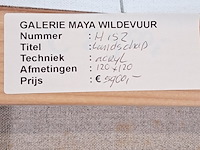 GALERIE MAYA WILDEVUUR
Nummer : H 152
Titel : Landschap
Techniek : acryl
Afmetingen : 120 x 120
Prijs : € 5900,-